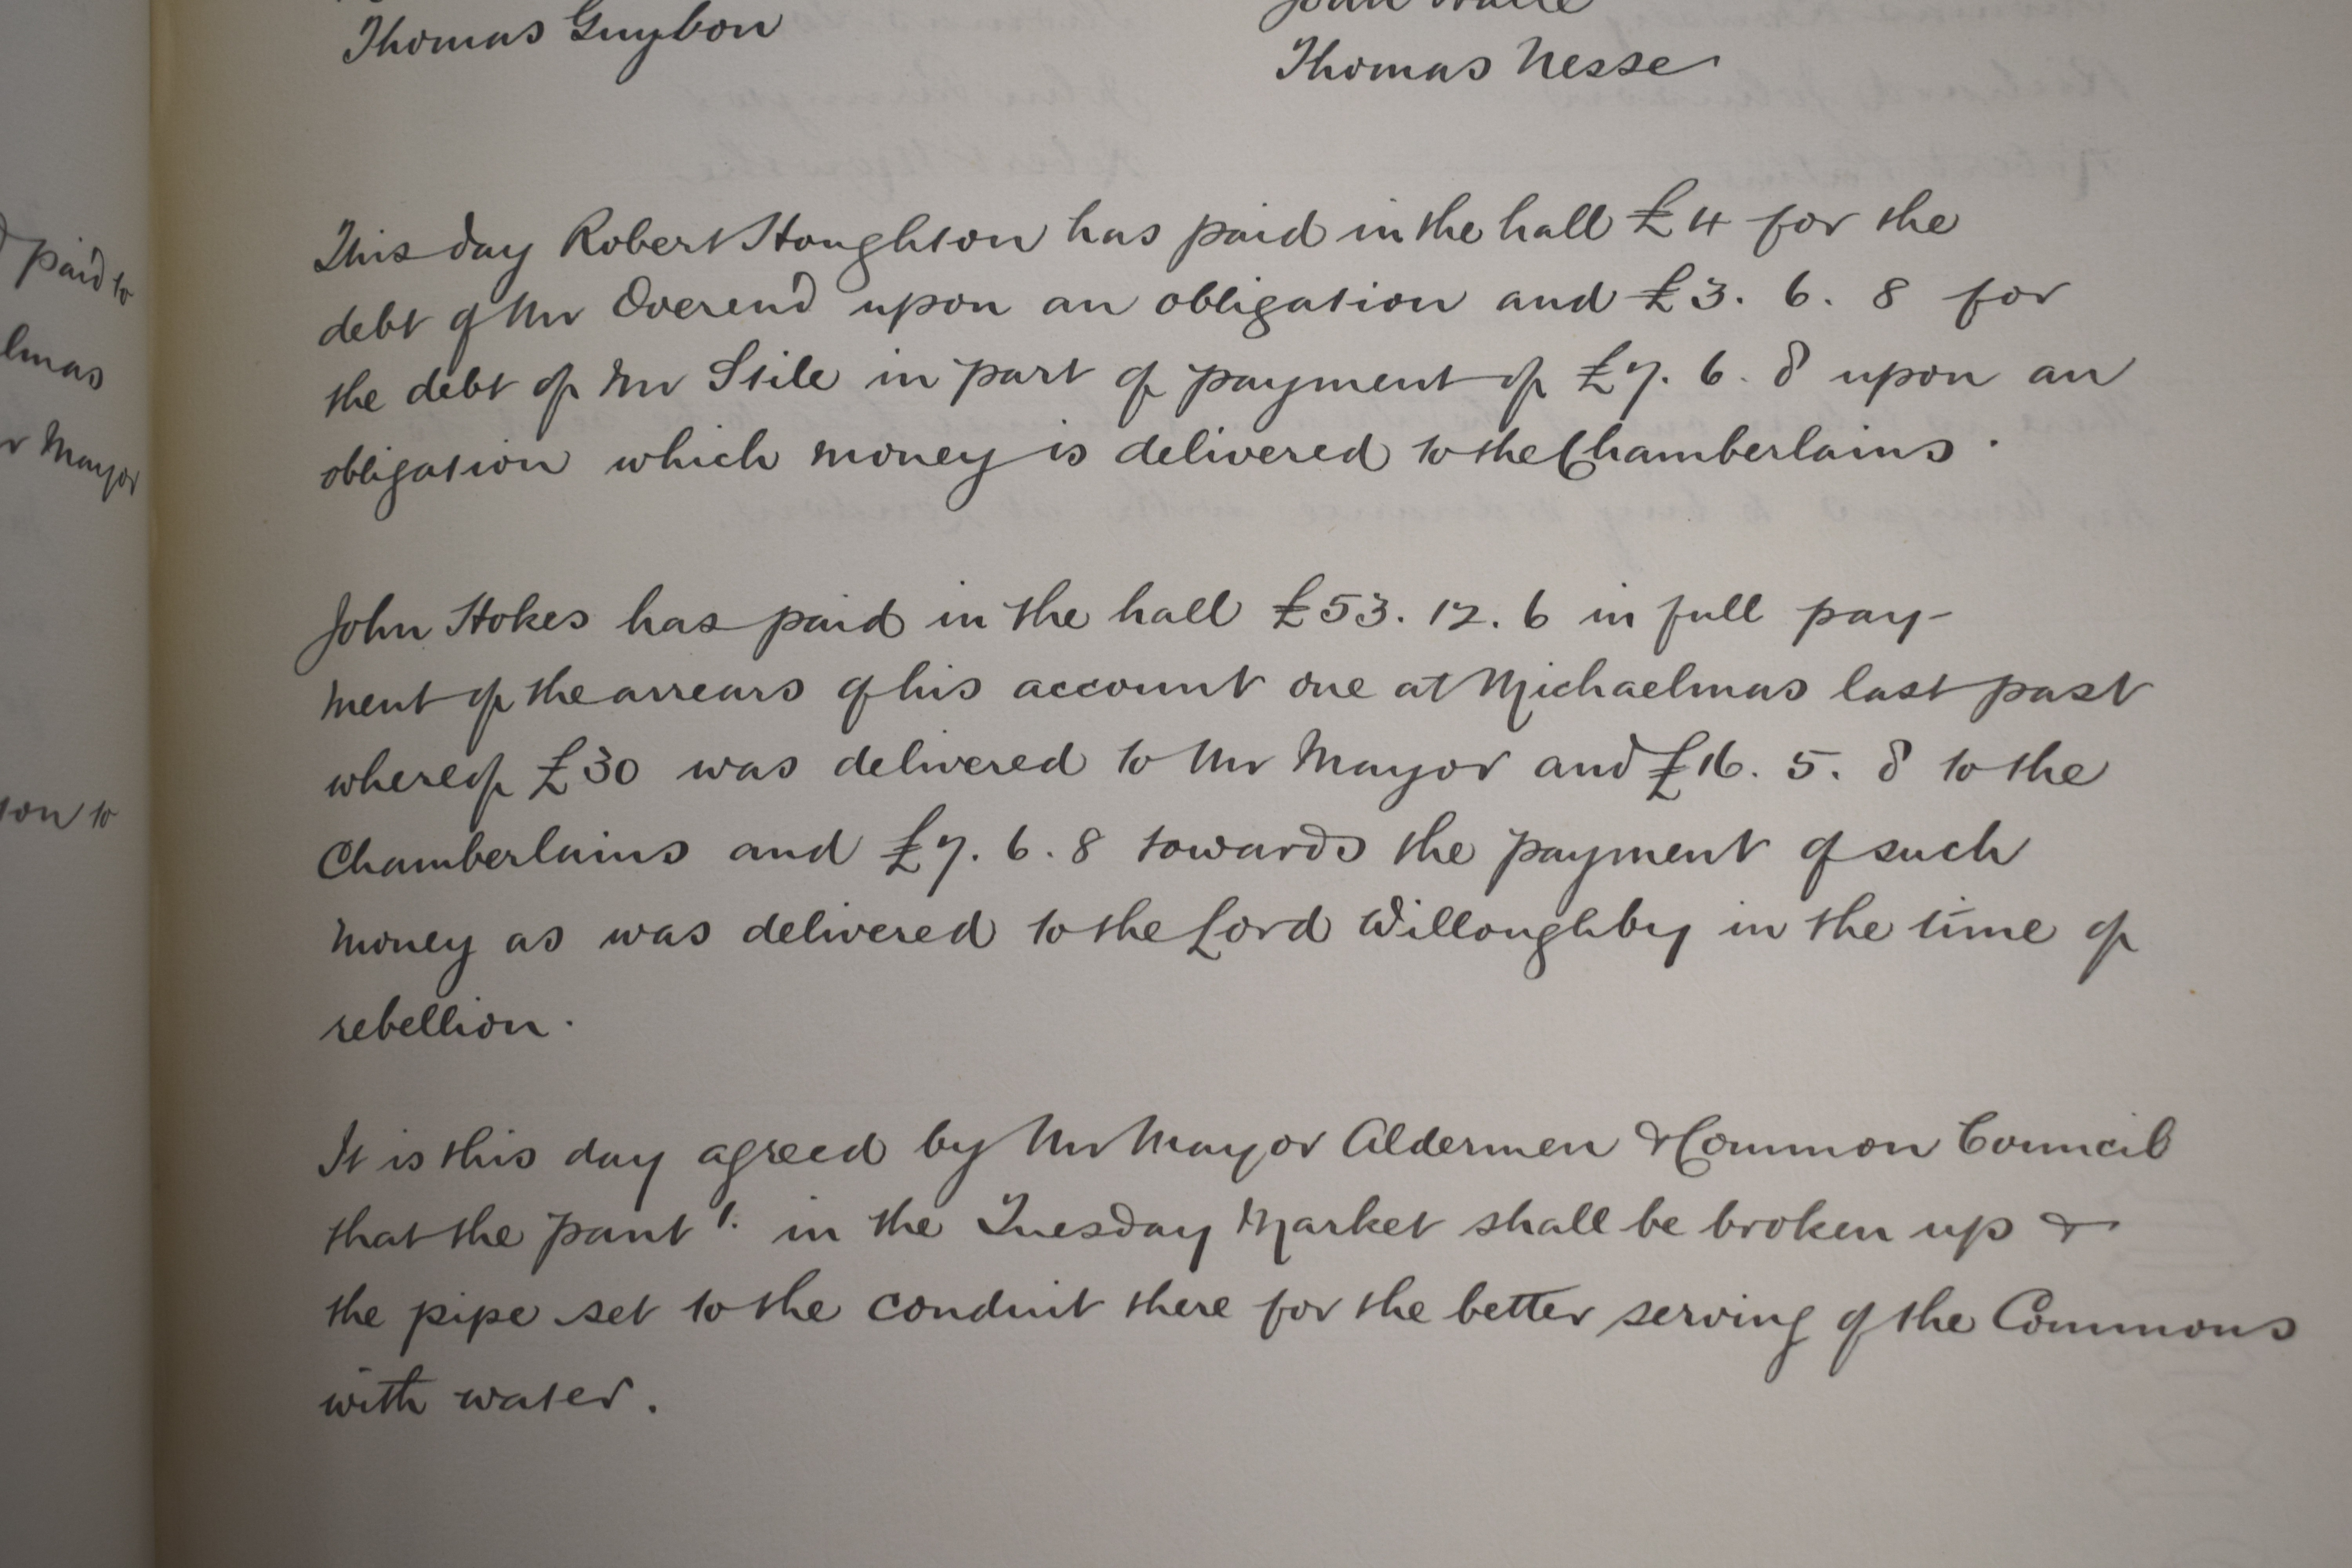 Thomas Guybon
Thomas Nesse
paid to
lmas
r Mayor
ton to
This day Robert Houghton has paid in the hall £4 for the
debt of Mr Overend upon an obligation and £3. 6. 8 for
the debt of Mr Stile in part of payment of £7. 6. 8 upon an
obligation which money is delivered to the Chamberlains.
John Stokes has paid in the hall £53. 12. 6 in full pay-
ment of the arrears of his account one at Michaelmas last past
whereof £30 was delivered to Mr Mayor and £16. 5. 8 to the
Chamberlains and £7. 6. 8 towards the payment of such
money as was delivered to the Lord Willoughby in the time of
rebellion.
It is this day agreed by Mr Mayor Aldermen & Common Council
that the pant 1. in the Tuesday Market shall be broken up &
the pipe set to the conduit there for the better serving of the Commons
with water.